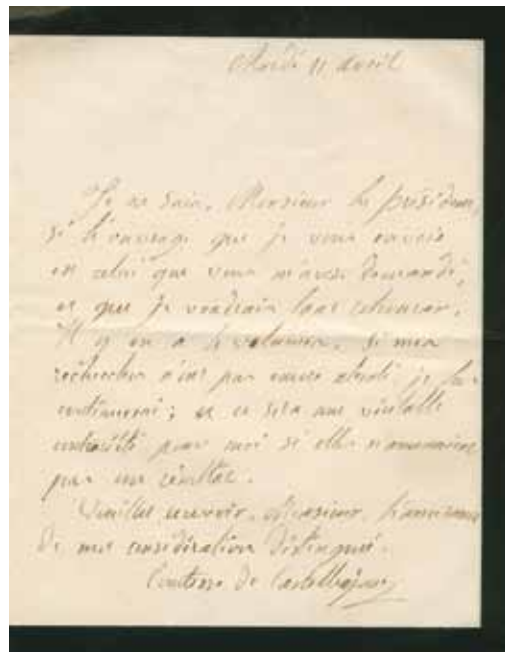 Mardi 11 avril
Je ne sais, Monsieur le président,
si l'ouvrage que je vous envoie
est celui que vous m'avez demandé,
et que je voudrais tant retrouver.
Il y en a 4 volumes. Si mes
recherches n'ont pas encore abouti, je les
continuerai; et ce sera une véritable
contrariété pour moi si elles n'amenaient
pas un résultat.
Veuillez recevoir, Monsieur, l'assurance
de ma considération distinguée.
Comtesse de Castelbajac